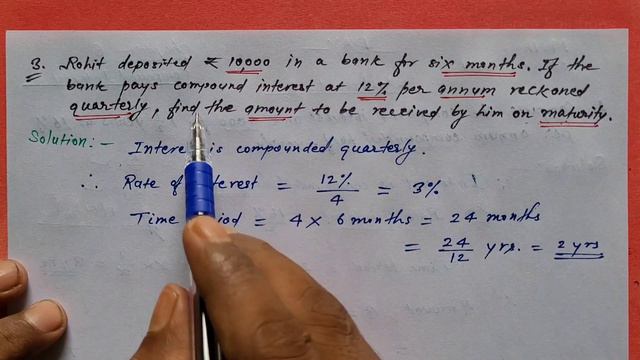 3. Rohit deposited ₹ 10,000 in a bank for six months. If the
bank pays compound interest at 12% per annum reckoned
quarterly, find the amount to be received by him on maturity.
Solution:- Interest is compounded quarterly.
∴ Rate of interest = 12%/4 = 3%
Time period = 4 × 6 months = 24 months
= 24/12 yrs. = 2 yrs